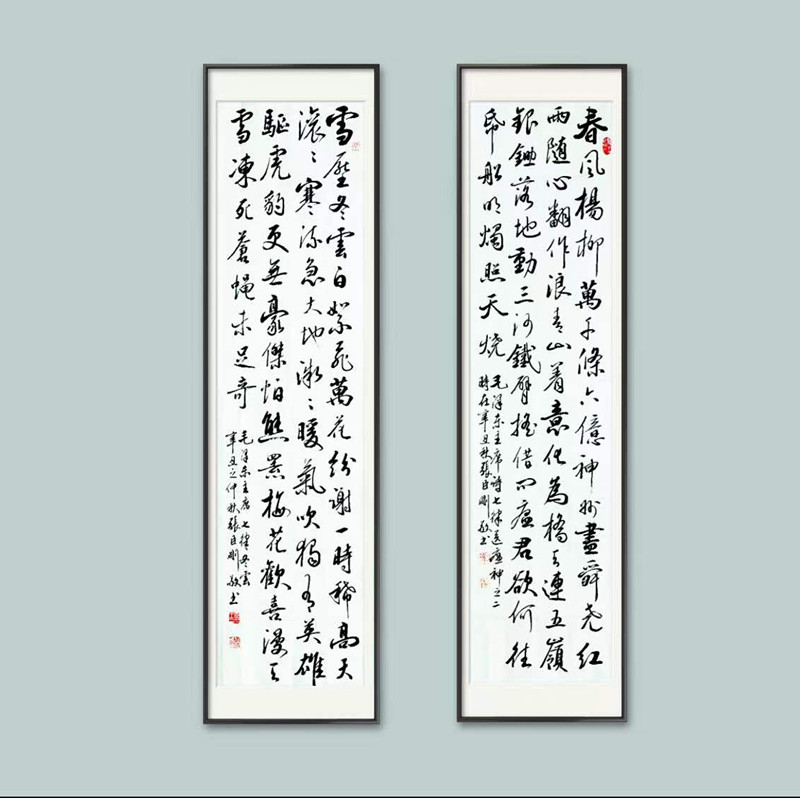 春風楊柳萬千條六億神州盡舜堯紅
雨隨心翻作浪青山着意化為橋天連五嶺
銀鋤落地動三河鐵臂搖借問瘟君欲何往
帋船明燭照天燒
毛澤東主席詩七律送瘟神之二
時在辛丑秋張臣剛敬書
雪壓冬雲白絮飛萬花紛謝一時稀高天
滾滾寒流急大地微微暖氣吹獨有英雄
驅虎豹更無豪傑怕熊羆梅花歡喜漫天
雪凍死蒼蠅未足奇
毛澤東主席七律冬雲
辛丑之仲秋張臣剛敬書